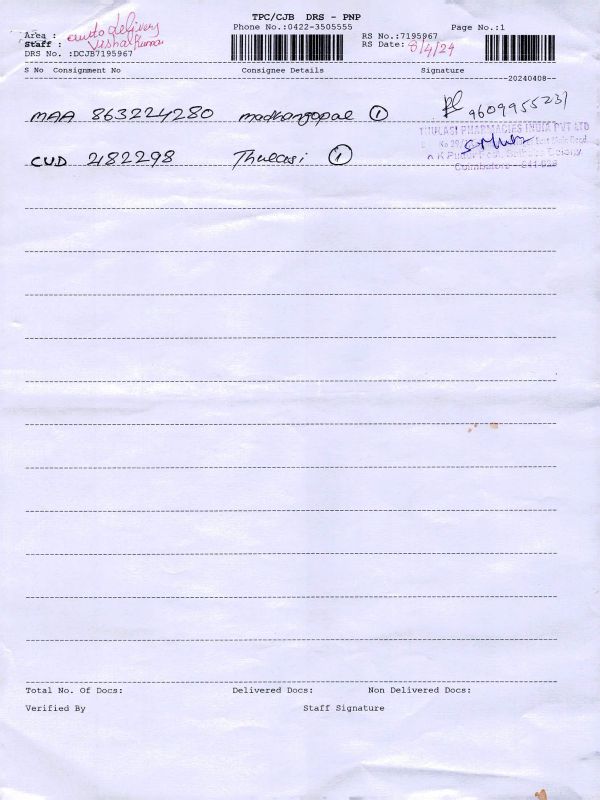 TPC/CJB DRS - PNP
Area : auto delivery
Phone No.:0422-3505555
RS No.:7195967
Page No.:1
Staff : Vishal Kumar
RS Date: 8/4/24
DRS No. :DCJB7195967
S No Consignment No Consignee Details Signature
20240408
MAA 863224280 madhangopal 1 9609955231
THULASI PHARMACIES INDIA PVT LTD
CUD 2182298 Thulasi 1
Coimbatore
Total No. Of Docs: Delivered Docs: Non Delivered Docs:
Verified By Staff Signature